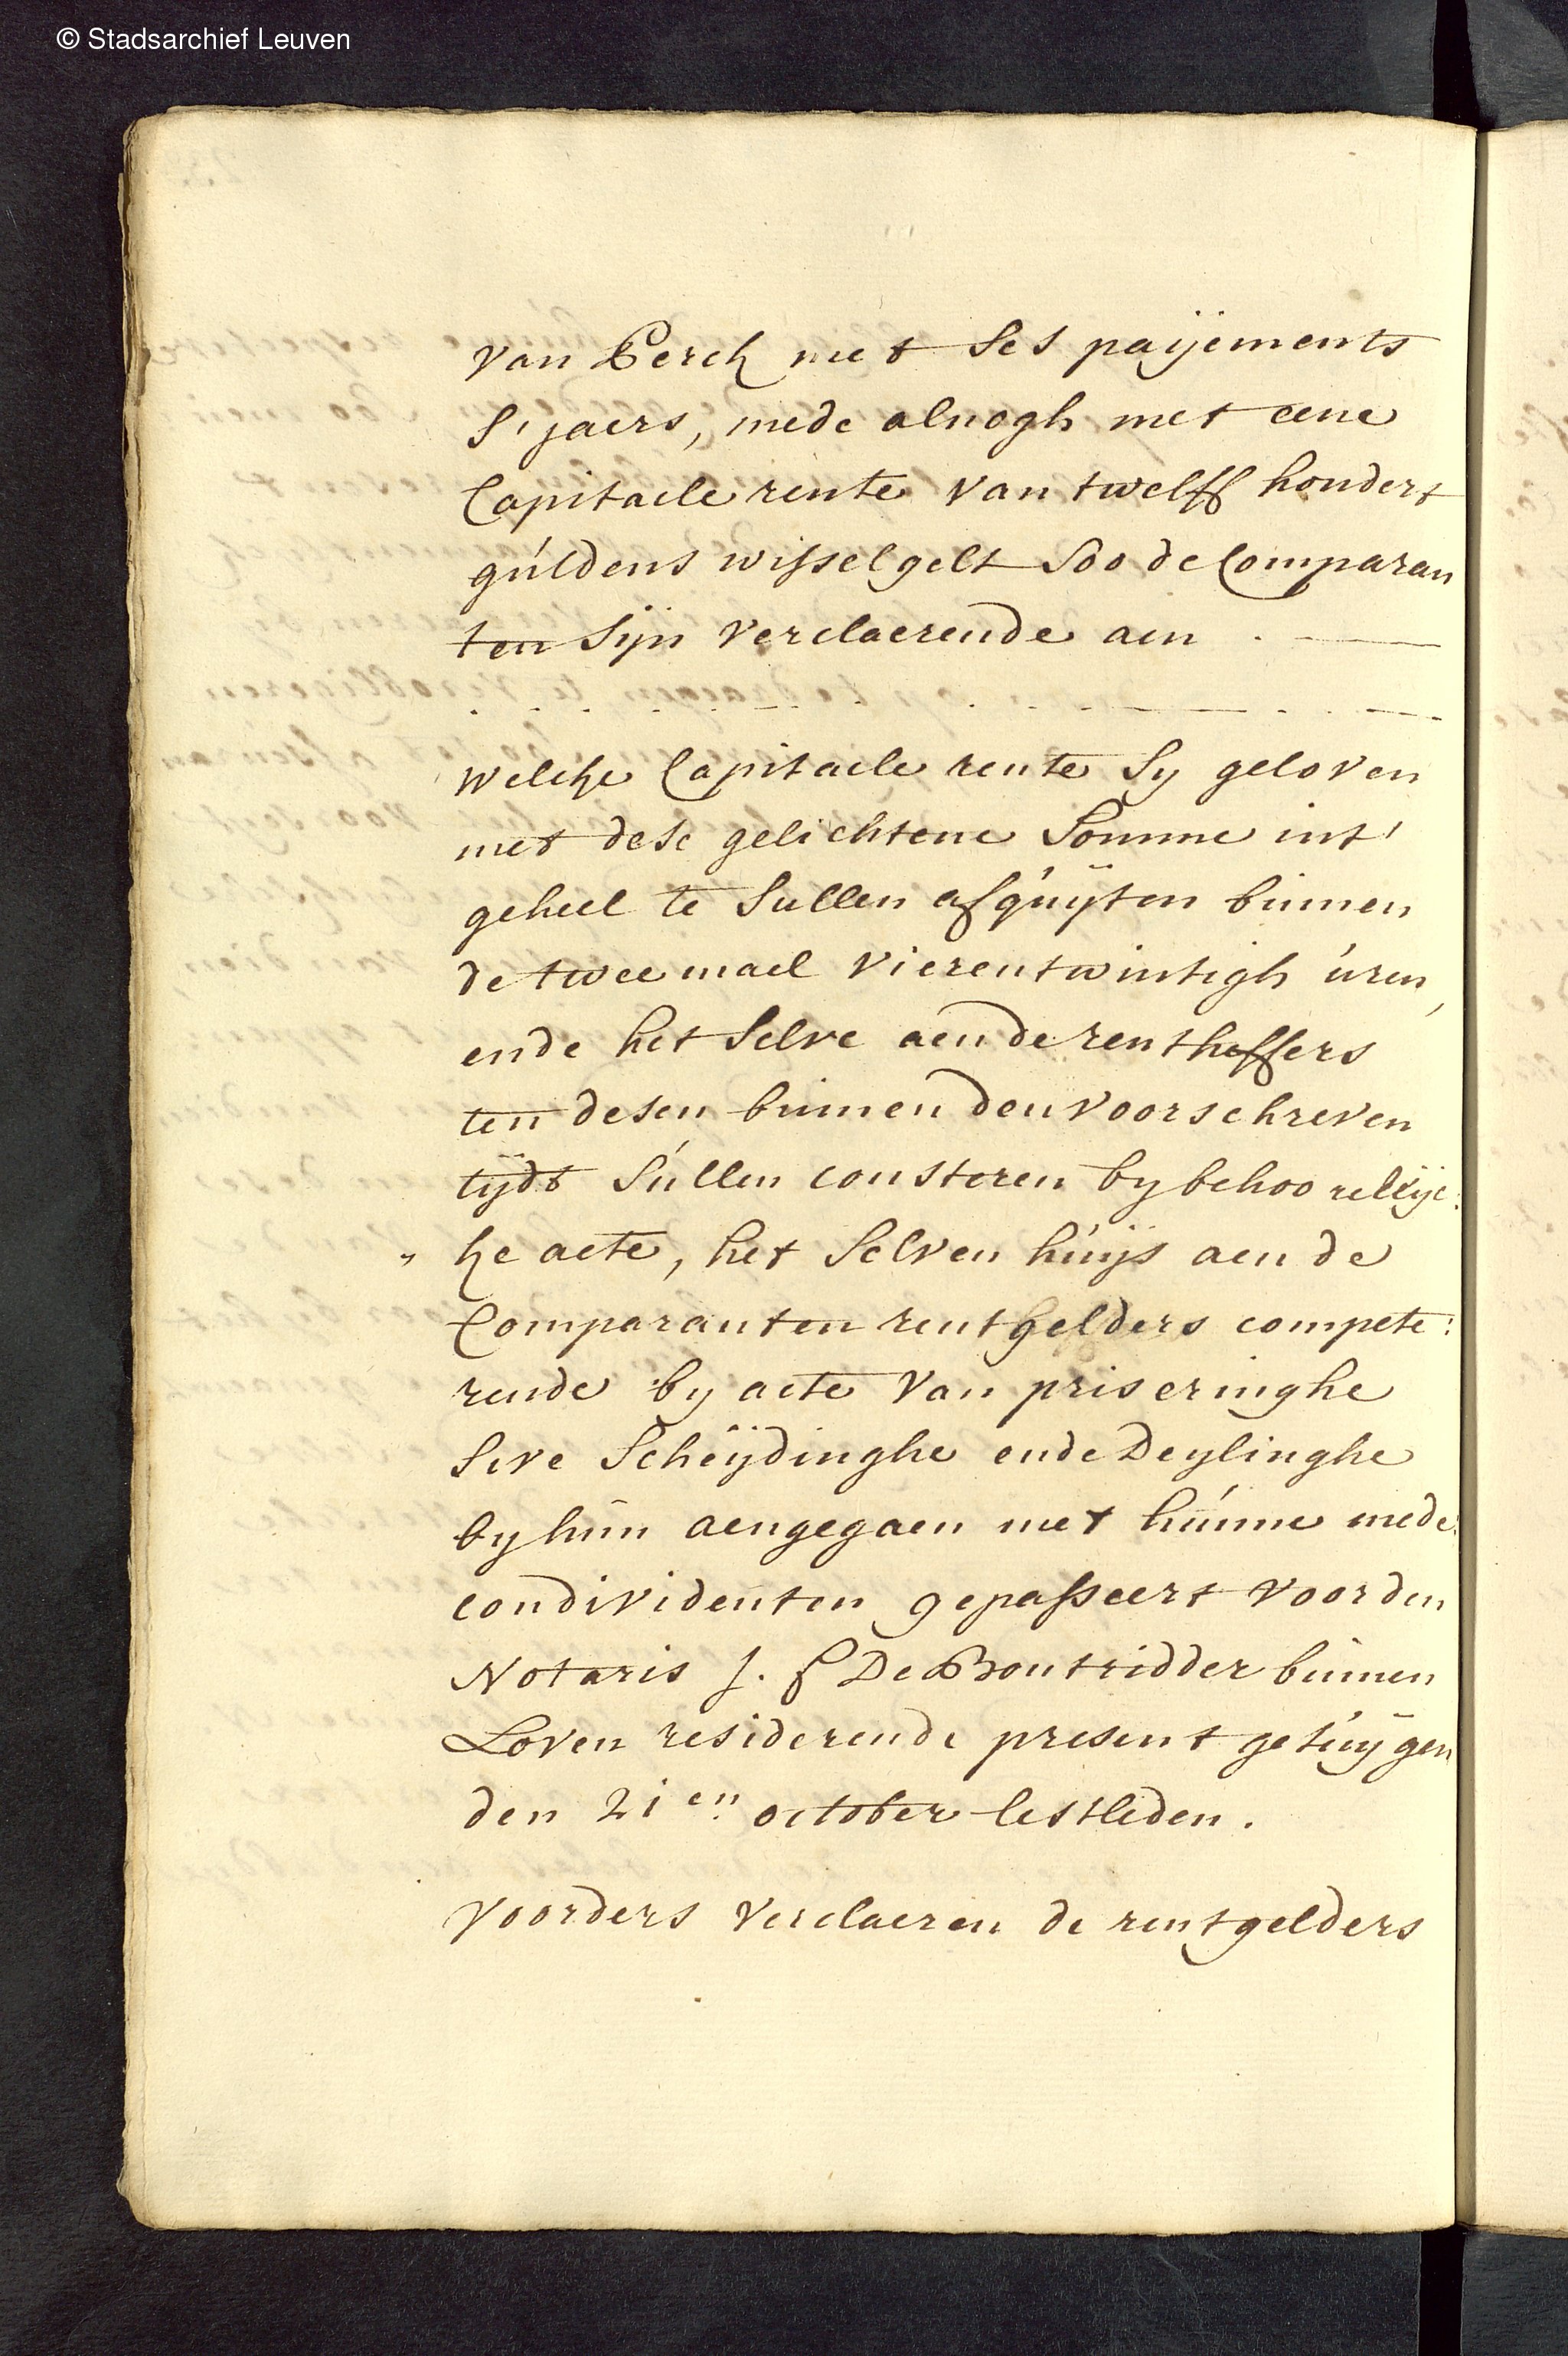 © Stadsarchief Leuven
van Perck met ses paÿements
s' jaers, mede alnogh met eene
Capitaele rente van twelff hondert
guldens wisselgelt soo de Comparan
ten sijn verclaerende aen . —
welcke Capitaele rente sy geloven
met dese gelichtene Somme int'
geheel te sullen afquÿten binnen
de twee mael vierentwintigh uren,
ende het selve aen de rentheffers
ten desen binnen den voorschreven
tÿdt sullen consteren by behoorelÿc:
ke acte, het selven huÿs aen de
Comparanten rentgelders compete:
rende by acte van priseringhe
sive Scheÿdinghe ende Deylinghe
by hun aengegaen met hunne mede:
condividenten gepasseert voor den
Notaris J. F De Bontridder binnen
Loven residerende present getuÿgen
den 21en october lestleden.
Voorders verclaeren de rentgelders